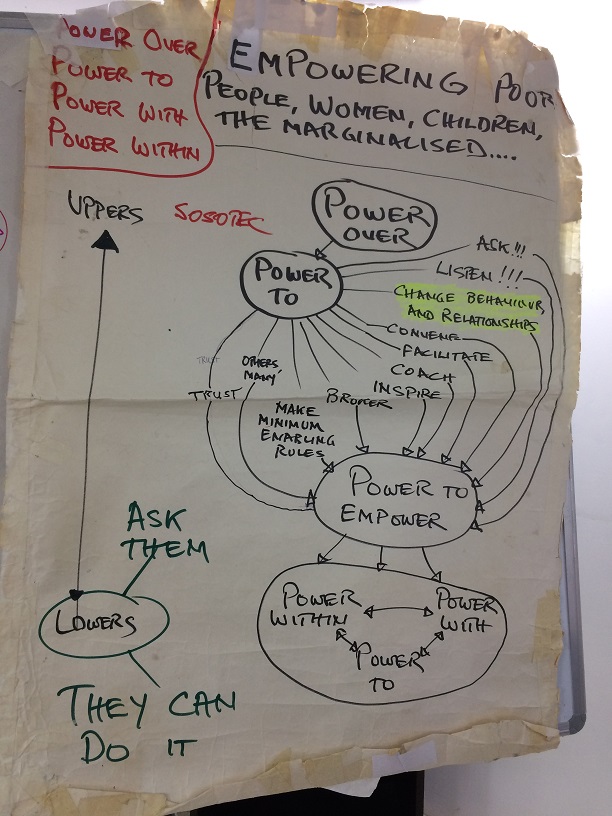 POWER OVER
POWER TO
POWER WITH
POWER WITHIN
EMPOWERING POOR
PEOPLE, WOMEN, CHILDREN,
THE MARGINALISED....
UPPERS
SOSOTEC
POWER
OVER
POWER
TO
ASK!!!
LISTEN!!!
CHANGE BEHAVIOUR
AND RELATIONSHIPS
CONVENE
FACILITATE
COACH
INSPIRE
BROKER
MAKE
MINIMUM
ENABLING
RULES
OTHERS
MANY
TRUST
TRUST
POWER TO
EMPOWER
POWER
WITHIN
POWER
WITH
POWER
TO
ASK
THEM
LOWERS
THEY CAN
DO IT